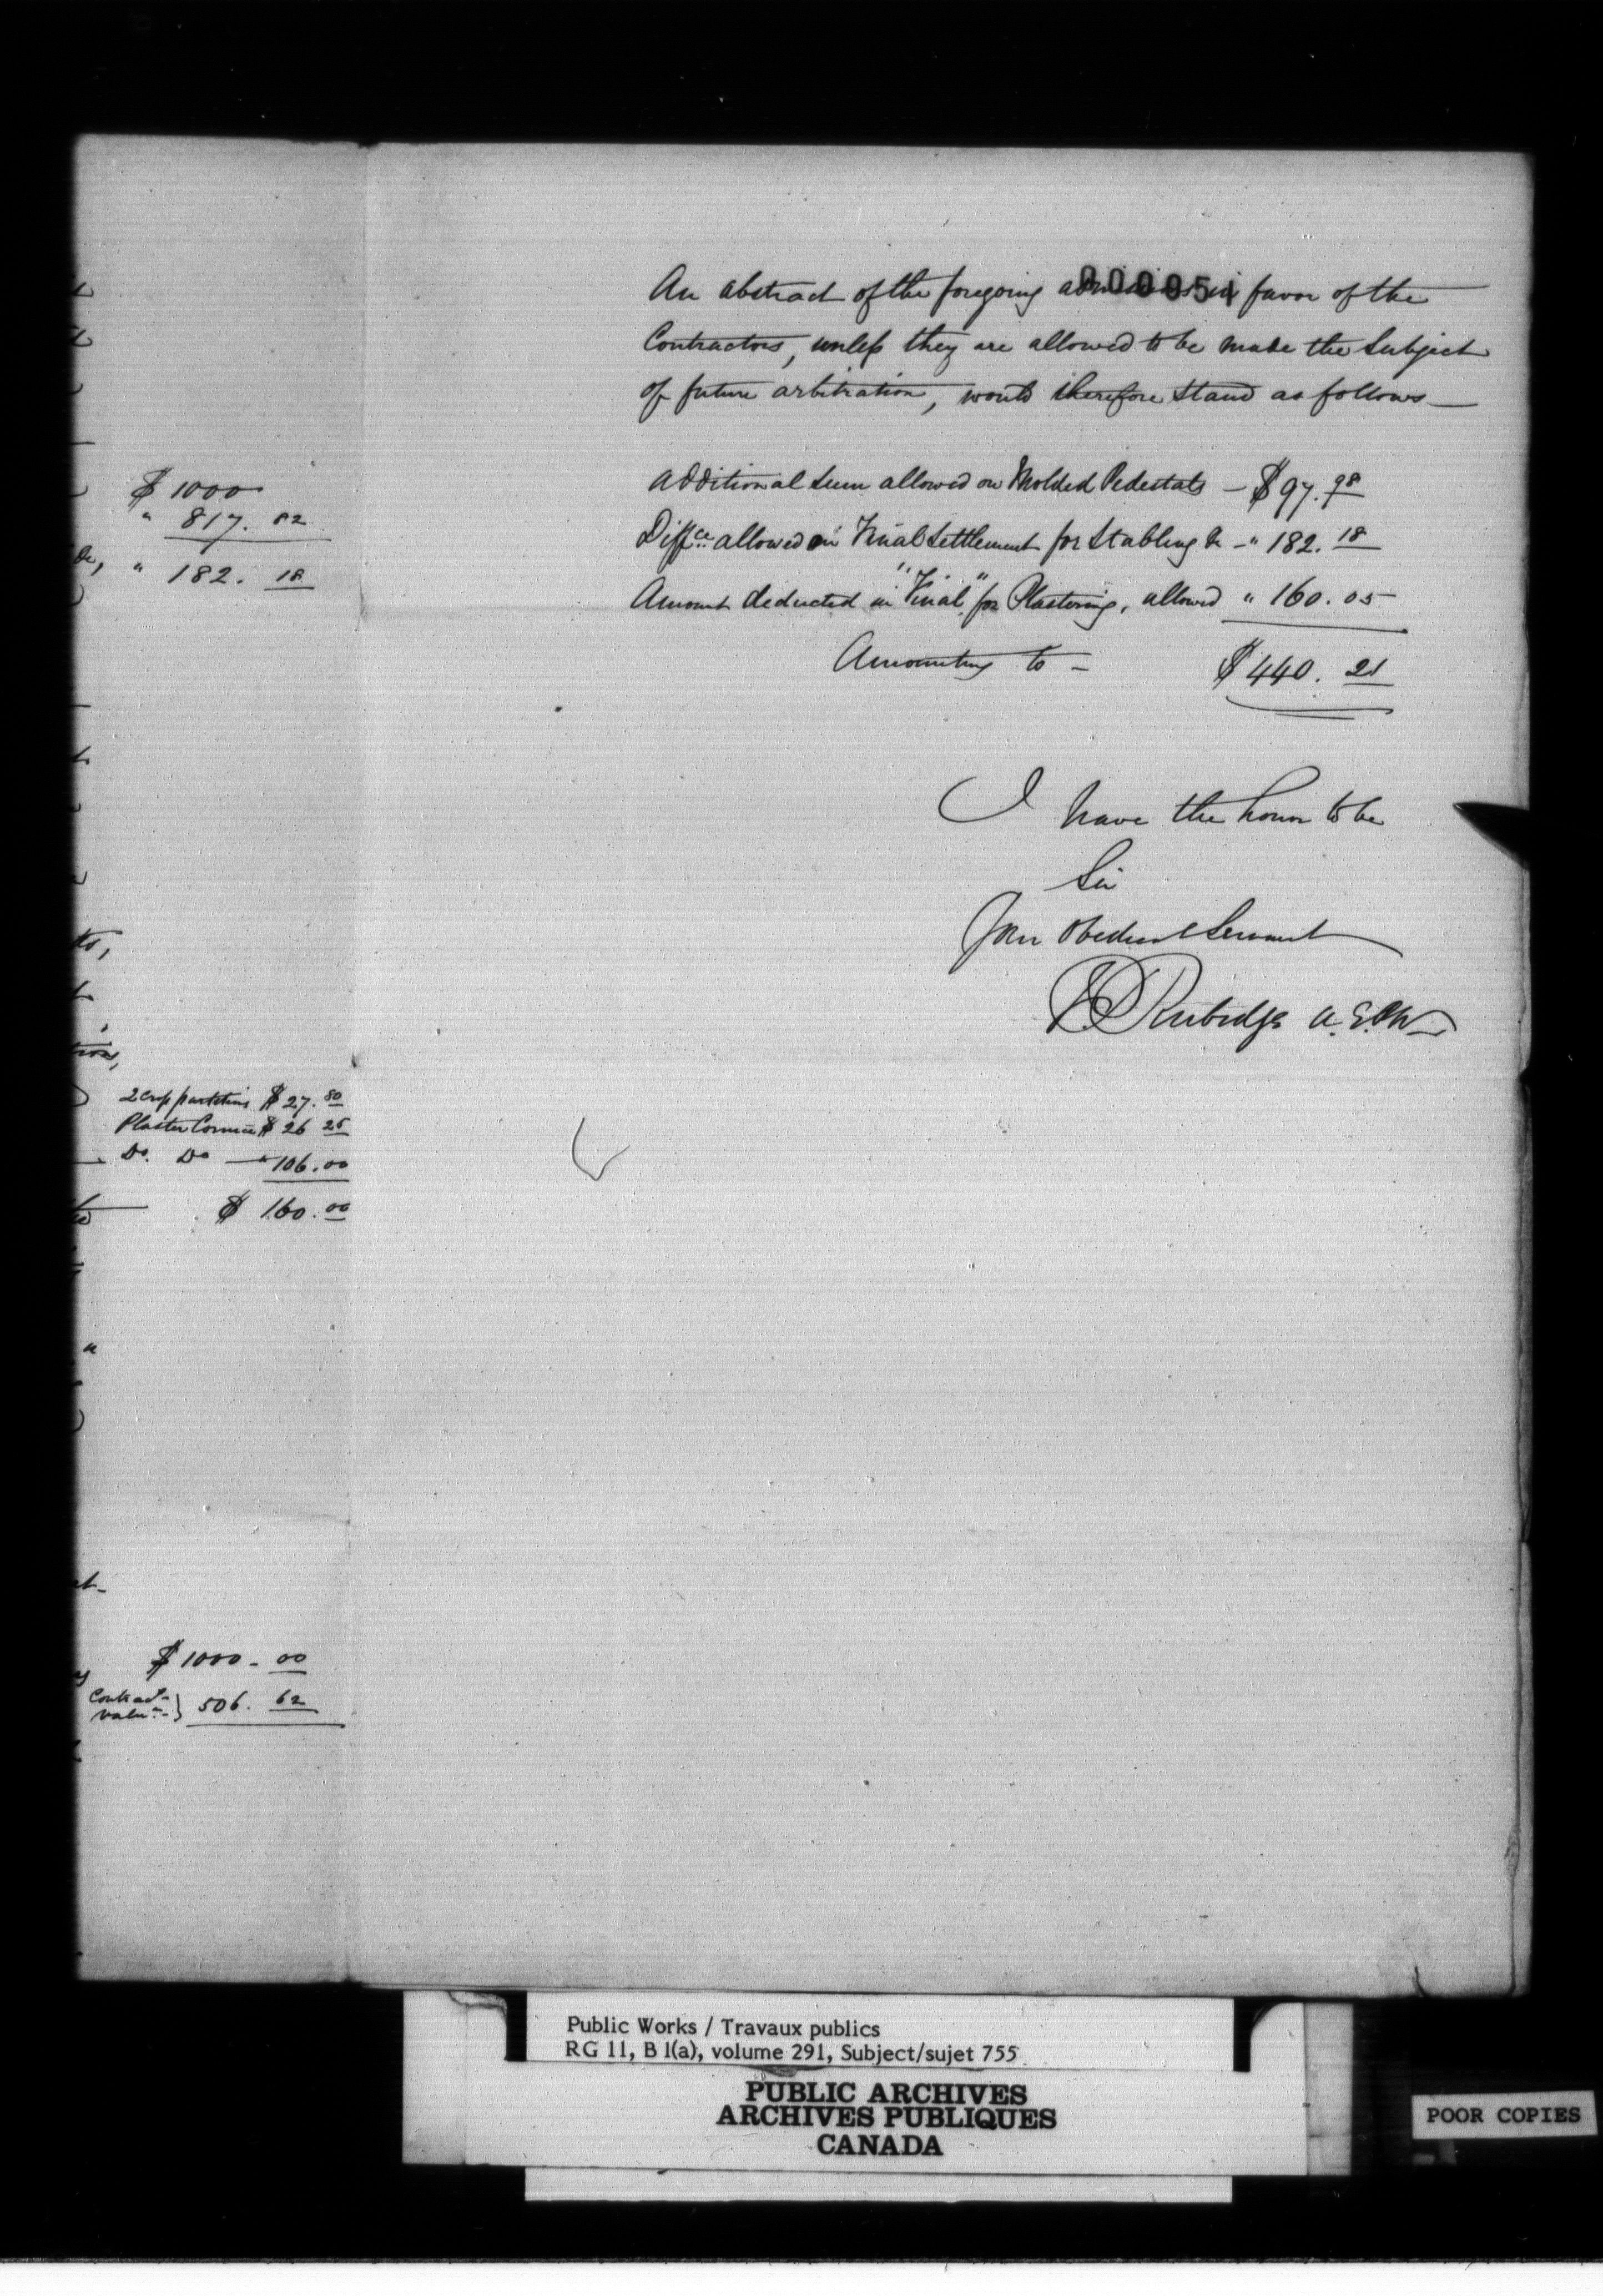 $ 1000
" 817. 82
&c, " 182. 18
to,
tion,
2 Cross partitions $ 27. 80
Plaster Cornice $ 26 25
Do. Do — " 106. 00
$ 160. 00
$ 1000 - 00
Contract
Value } 506. 62
000954
An abstract of the foregoing in favor of the
Contractors, unless they are allowed to be made the Subject
of future arbitration, would therefore stand as follows —
Additional sum allowed on Molded Pedestals — $ 97. 98
Diffce allowed on Final Settlement for Stabling &c — " 182. 18
Amount deducted in "Final" for Plastering, allowed " 160. 05
Amounting to — $ 440. 21
I have the honor to be
Sir
Your Obedient Servant
Rubidge A.E.P.W.
Public Works / Travaux publics
RG 11, B 1(a), volume 291, Subject/sujet 755
PUBLIC ARCHIVES
ARCHIVES PUBLIQUES
CANADA
POOR COPIES